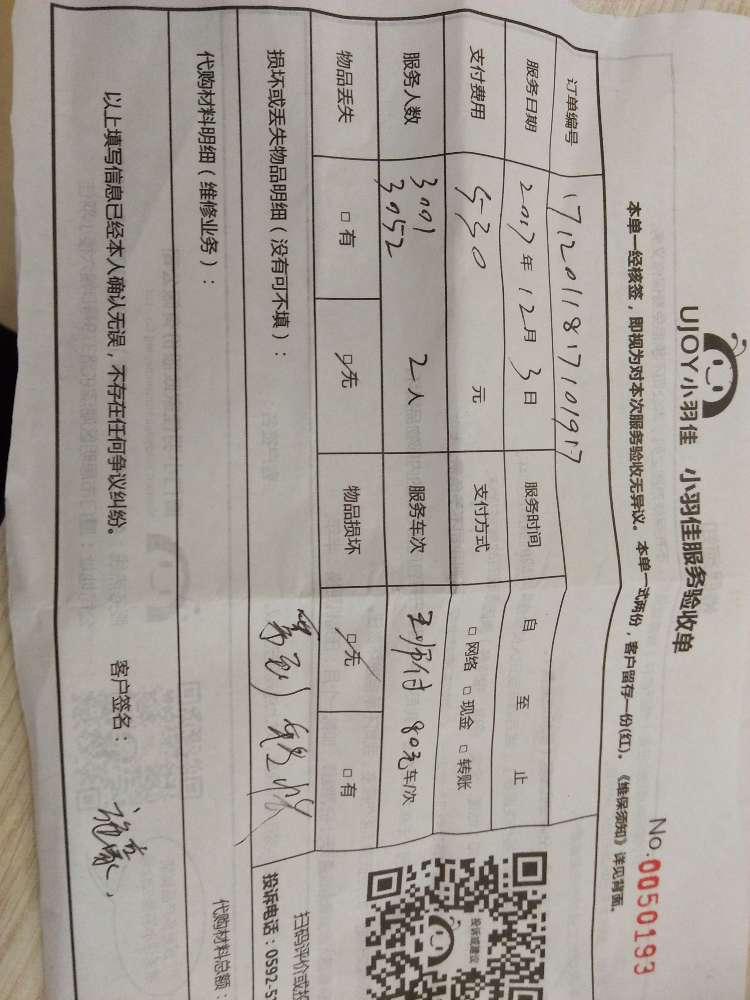 UJOY小羽佳 小羽佳服务验收单
No.0050193
本单一经核签，即视为对本次服务验收无异议。本单一式两份，客户留存一份(红)。《维保须知》详见背面。
订单编号 171201181710 1917
服务日期 2017年12月3日 服务时间 自 至 止
支付费用 530 元 支付方式 □网络 □现金 □转账
服务人数 3091 3052 2人 服务车次 80元车/次
物品丢失 □有 □无 物品损坏 □无 □有
损坏或丢失物品明细（没有可不填）：
扫码评价或投
投诉建议
投诉电话：0592-5
代购材料明细（维修业务）：
代购材料总额：
以上填写信息已经本人确认无误，不存在任何争议纠纷。 客户签名：